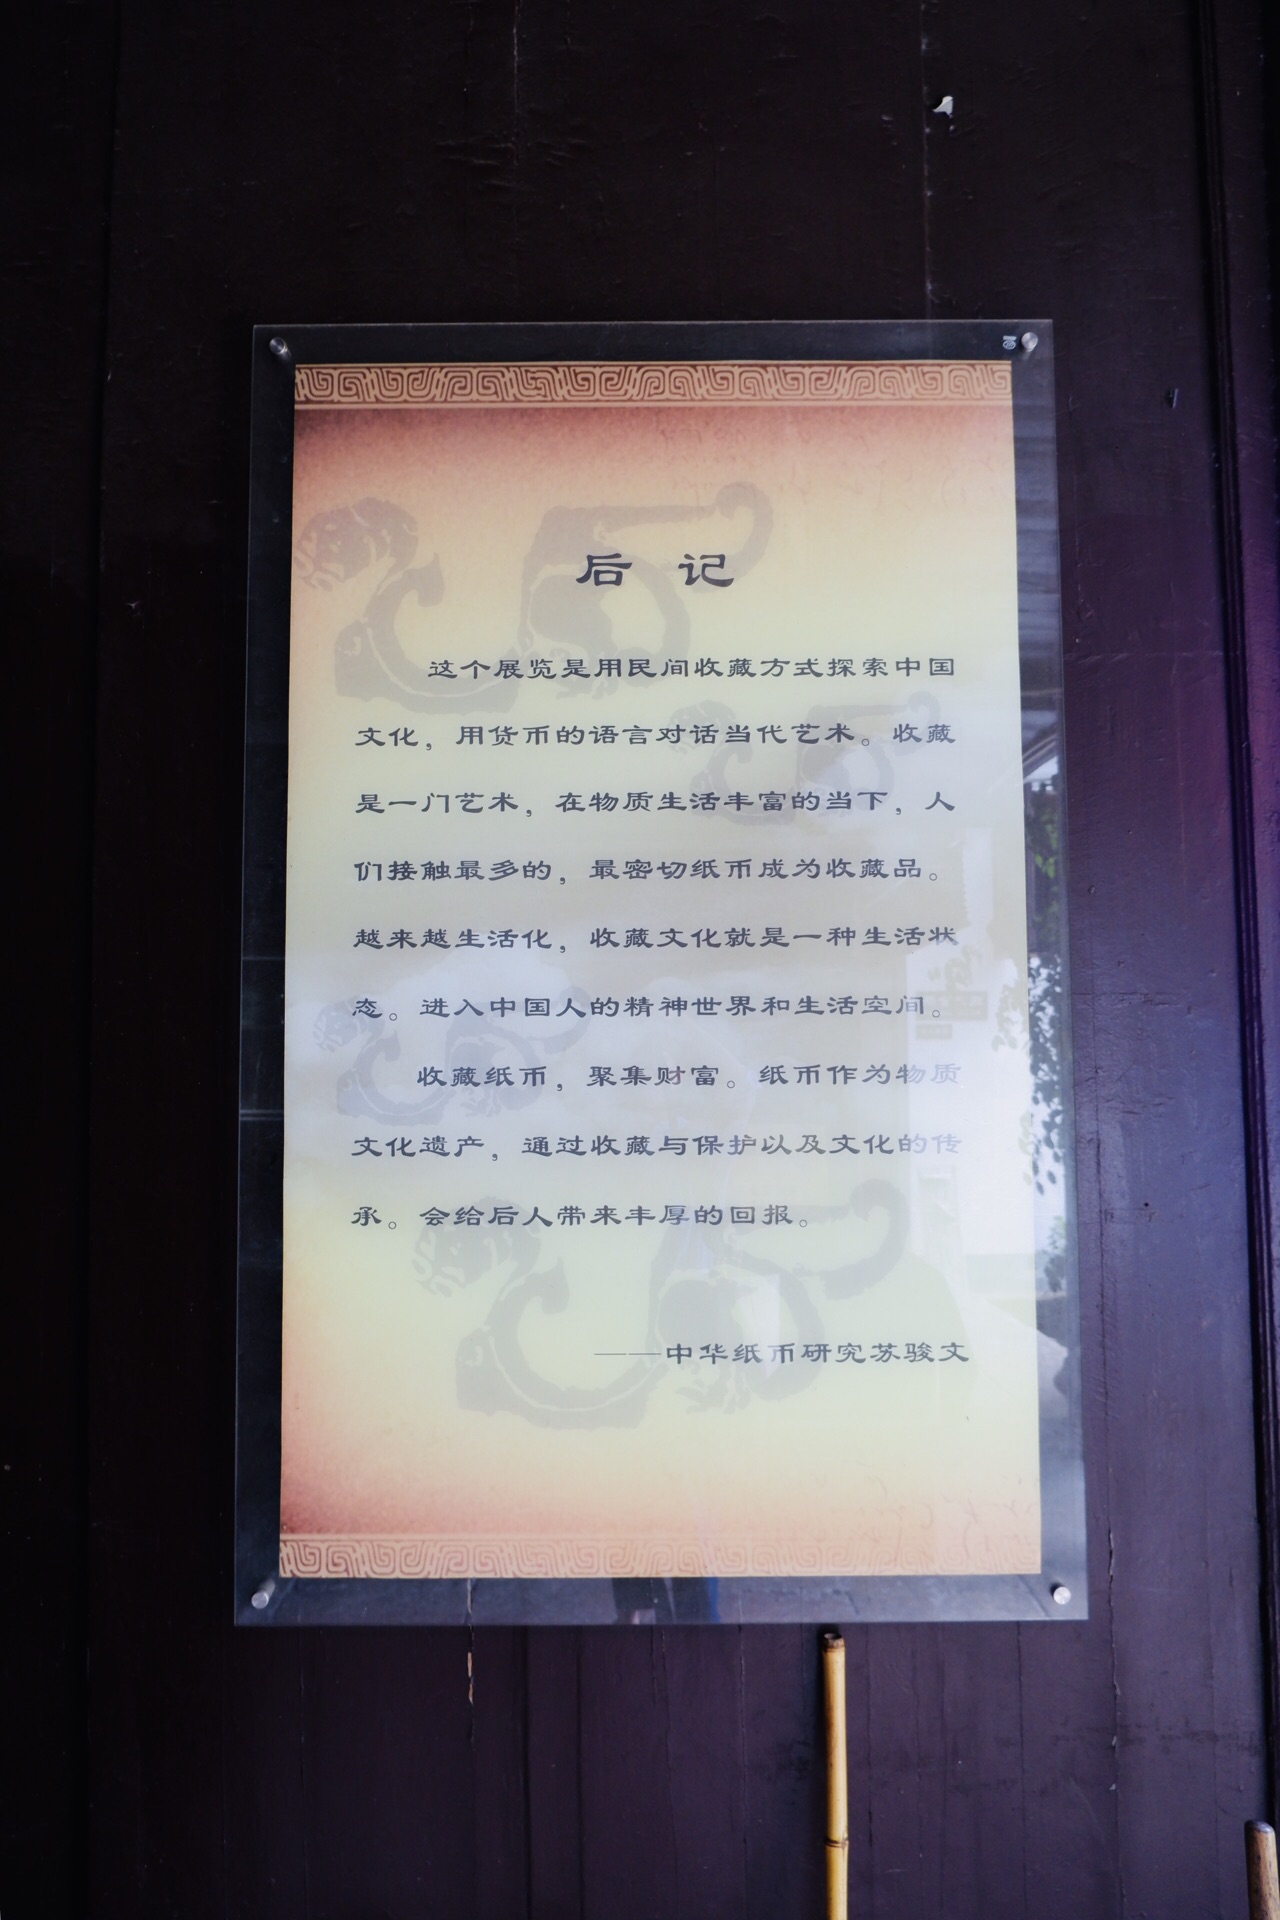 后 记
这个展览是用民间收藏方式探索中国
文化，用货币的语言对话当代艺术。收藏
是一门艺术，在物质生活丰富的当下，人
们接触最多的，最密切纸币成为收藏品。
越来越生活化，收藏文化就是一种生活状
态。进入中国人的精神世界和生活空间。
收藏纸币，聚集财富。纸币作为物质
文化遗产，通过收藏与保护以及文化的传
承。会给后人带来丰厚的回报。
——中华纸币研究苏骏文